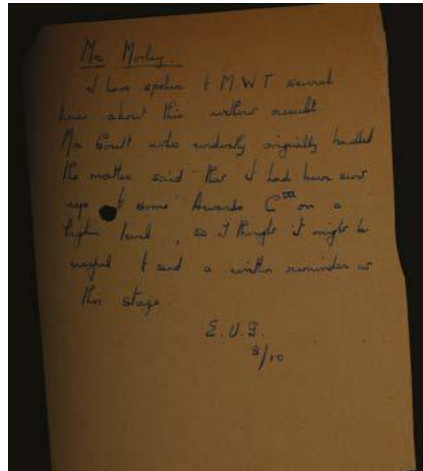 Mr Morley.
I have spoken to M W T several
times about this without result
Mr who evidently originally handled
the matter said that it had been sent
up to some Awards Cttee on a
higher level, so I thought it might be
useful to send a written reminder at
this stage.
E.U.G.
8/10